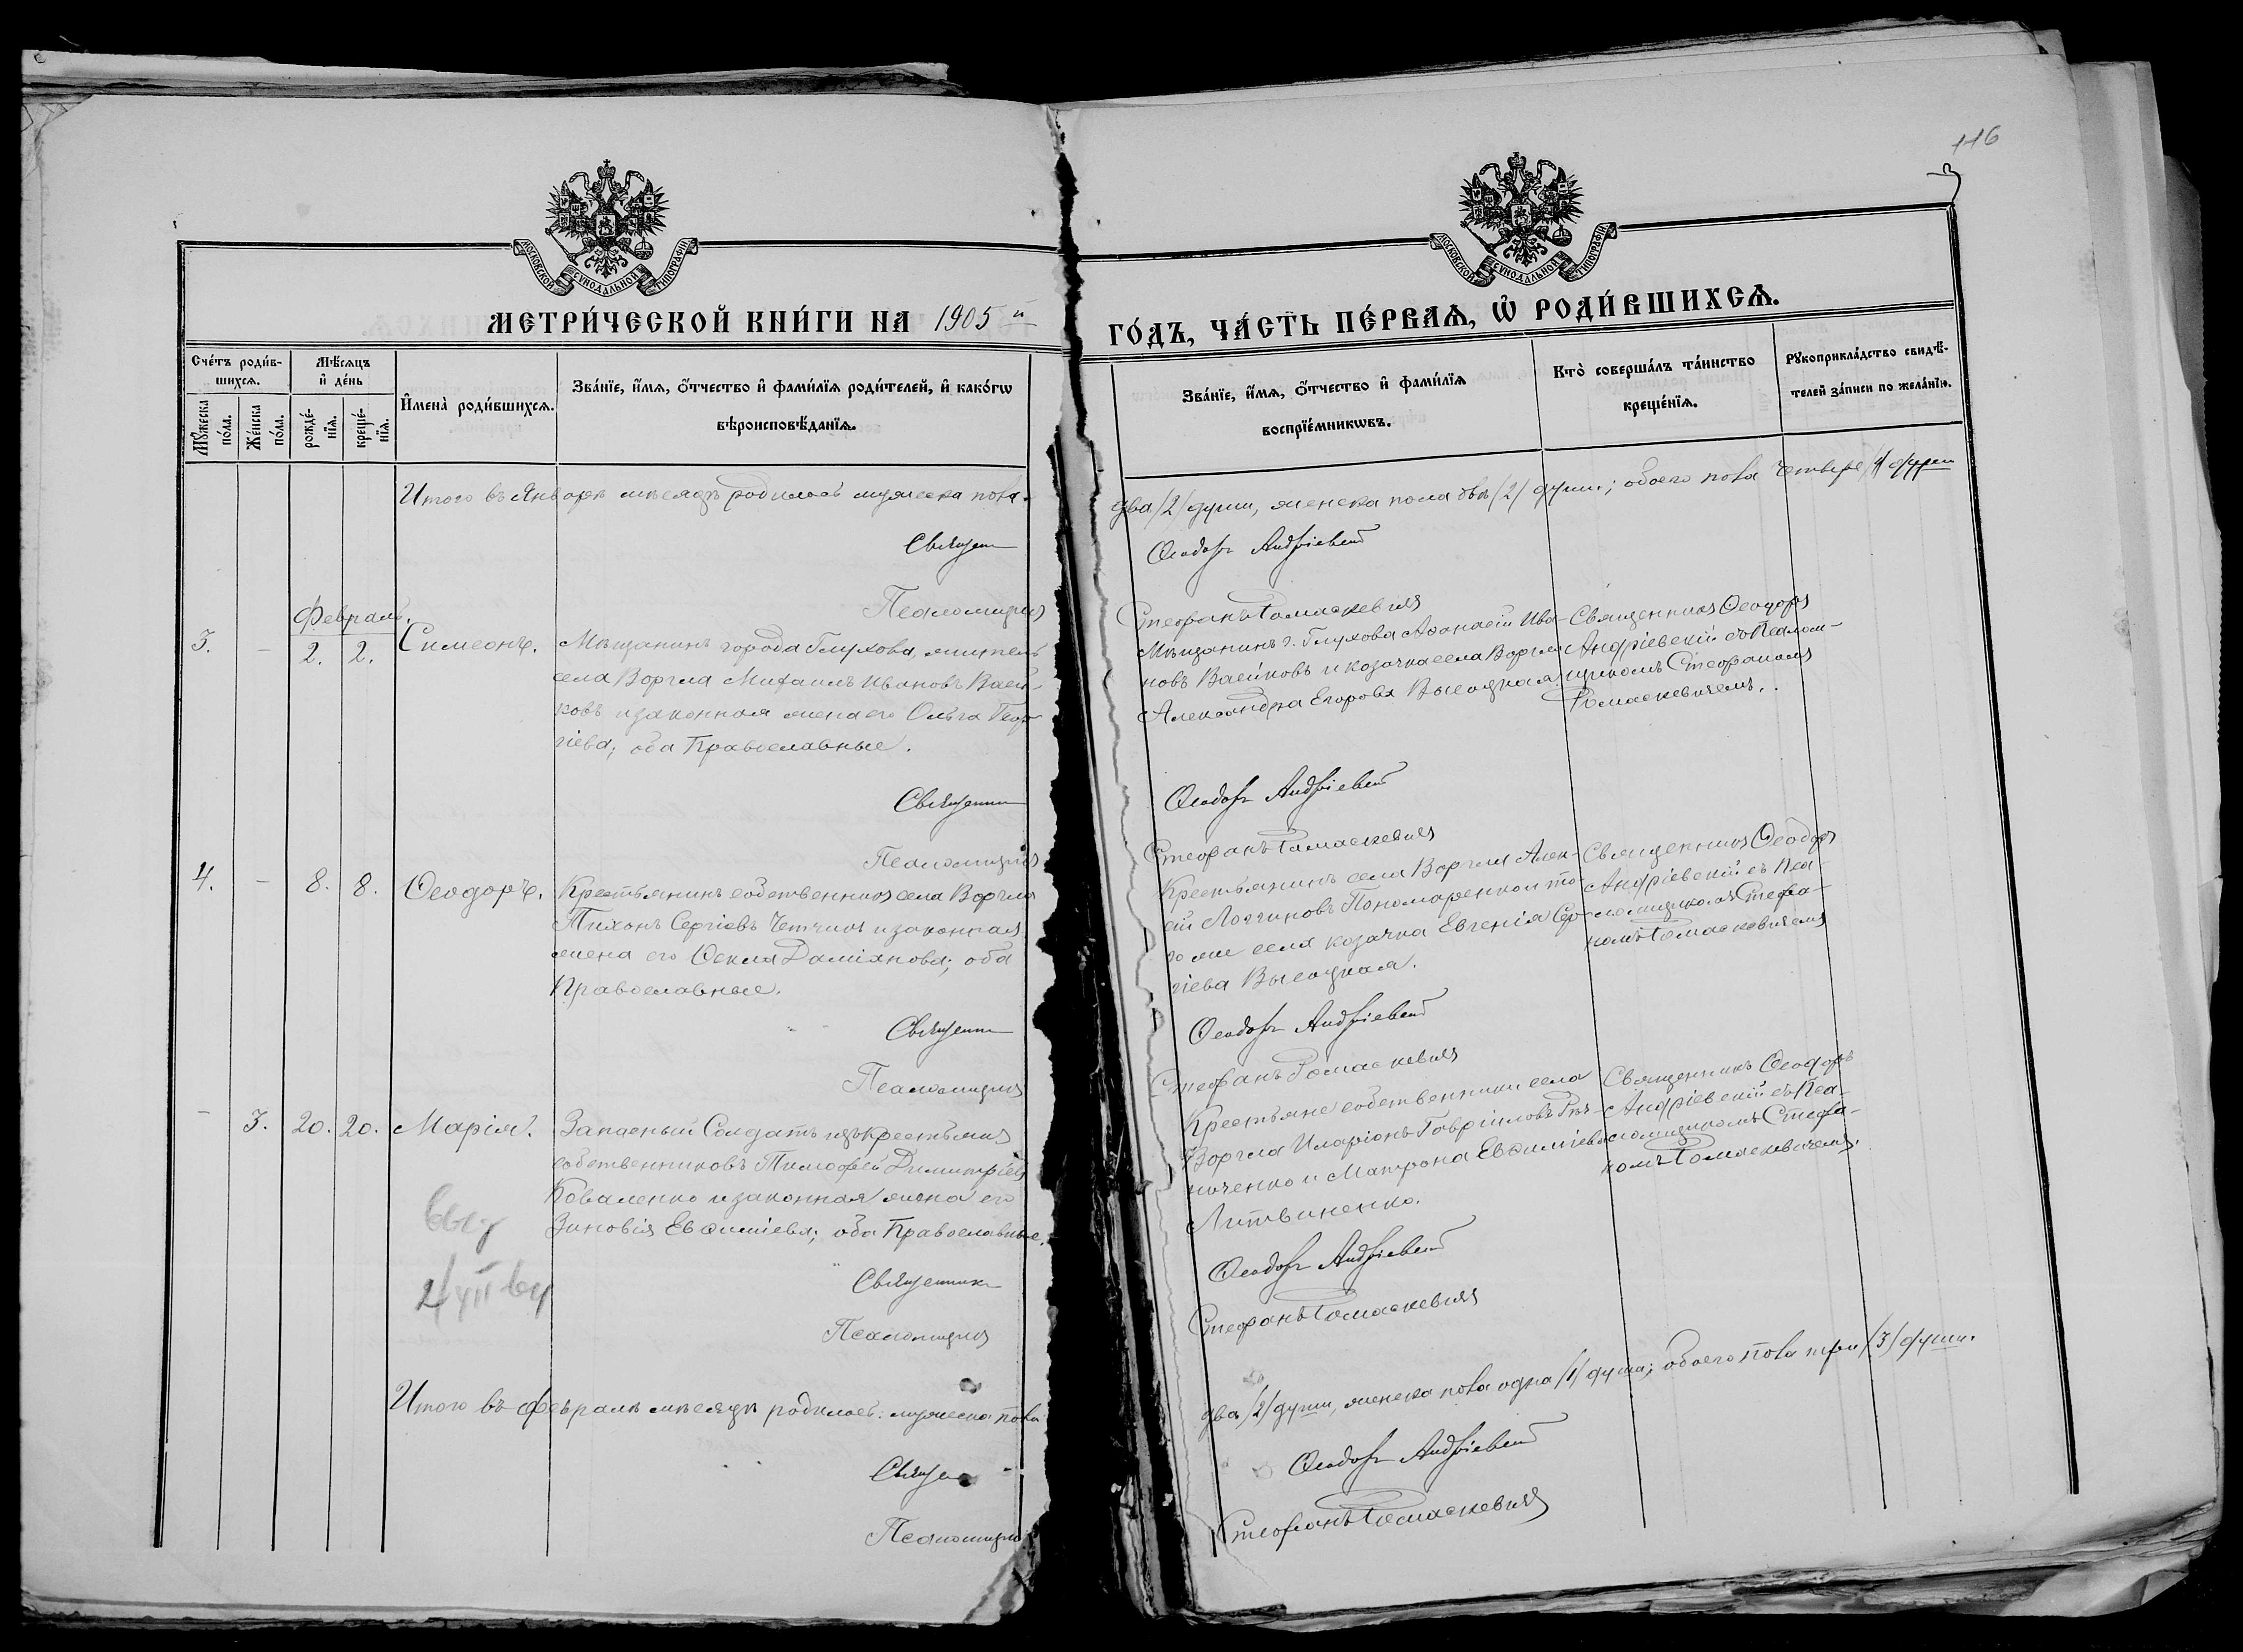 116
МОСКОВСКОЙ СѴНОДАЛЬНОЙ ТИПОГРАФІИ
МОСКОВСКОЙ СѴНОДАЛЬНОЙ ТИПОГРАФІИ
МЕТРИ́ЧЕСКОЙ КНИ́ГИ НА 1905 й
ГО́ДЪ, ЧА́СТЬ ПЕ́РВАѦ, Ѽ РОДИ́ВШИХСѦ.
Сче́тъ роди́в-
шихсѧ.
Мꙋ́жеска по́ла.
Же́нска по́ла.
Мѣ́сѧцъ
и҆ де́нь
рожде́-
нїѧ.
креще́-
нїѧ.
И҆мена̀ роди́вшихсѧ.
Зва́нїе, и҆́мѧ, ѻ҆́тчество и҆ фами́лїѧ роди́телей, и҆ како́гѡ
вѣроисповѣ́данїѧ.
Зва́нїе, и҆́мѧ, ѻ҆́тчество и҆ фами́лїѧ
воспрїе́мникѡвъ.
Кто̀ соверша́лъ та́инство
креще́нїѧ.
Рꙋкоприкла́дство свидѣ́-
телей за́писи по жела́нїю.
Итого въ Январѣ мѣсяцѣ родилось мужеска пола
два /2/ души, женска пола двѣ /2/ души; обоего пола четыре /4/ души
Священ
Ѳеодоръ Андріевскій
Псаломщикъ
Стефанъ Ромаскевичъ
Февраль.
3. - 2. 2. Симеонъ.
Мѣщанинъ города Глухова, житель
села Воргла Михаилъ Ивановъ Васи-
ковъ и законная жена его Ольга Геор-
гіева; оба Православные.
Мѣщанинъ г. Глухова Аѳанасій Ива-
новъ Васиковъ и козачка села Воргла
Александра Егорова Высоцкая
Священникъ Ѳеодоръ
Андріевскій съ Псалом-
щикомъ Стефаномъ
Ромаскевичемъ.
Священник
Ѳеодоръ Андріевскій
Псаломщикъ
Стефанъ Ромаскевичъ
4. - 8. 8. Ѳеодоръ.
Крестьянинъ собственникъ села Воргла
Тихонъ Сергіевъ и законная
жена его Ѳекла Даміанова; оба
Православные.
Крестьянинъ села Воргла Алек-
сій Логгиновъ Пономаренко и то-
го же села козачка Евгенія Сер-
гіева Высоцкая.
Священникъ Ѳеодоръ
Андріевскій съ Пса-
ломщикомъ Стефа-
номъ Ромаскевичемъ
Священ
Ѳеодоръ Андріевскій
Псаломщикъ
Стефанъ Ромаскевичъ
- 3. 20. 20. Марія.
Запасный Солдатъ изъ крестьянъ
собственниковъ Тимофей Димитріевъ
Коваленко и законная жена его
Зиновія Евѳиміева; оба Православные.
Крестьяне собственники села
Воргла Иларіонъ Гавріиловъ Рѣз-
ниченко и Матрона Евѳиміева
Литвиненко.
Священникъ Ѳеодоръ
Андріевскій съ Пса-
ломщикомъ Стефа-
номъ Ромаскевичемъ.
Священник
Ѳеодоръ Андріевскій
Псаломщикъ
Стефанъ Ромаскевичъ
Итого въ Февралѣ мѣсяцѣ родилось: мужеска пола
два /2/ души, женска пола одна /1/ душа; обоего пола три /3/ души.
Священ
Ѳеодоръ Андріевскій
Псаломщикъ
Стефанъ Ромаскевичъ